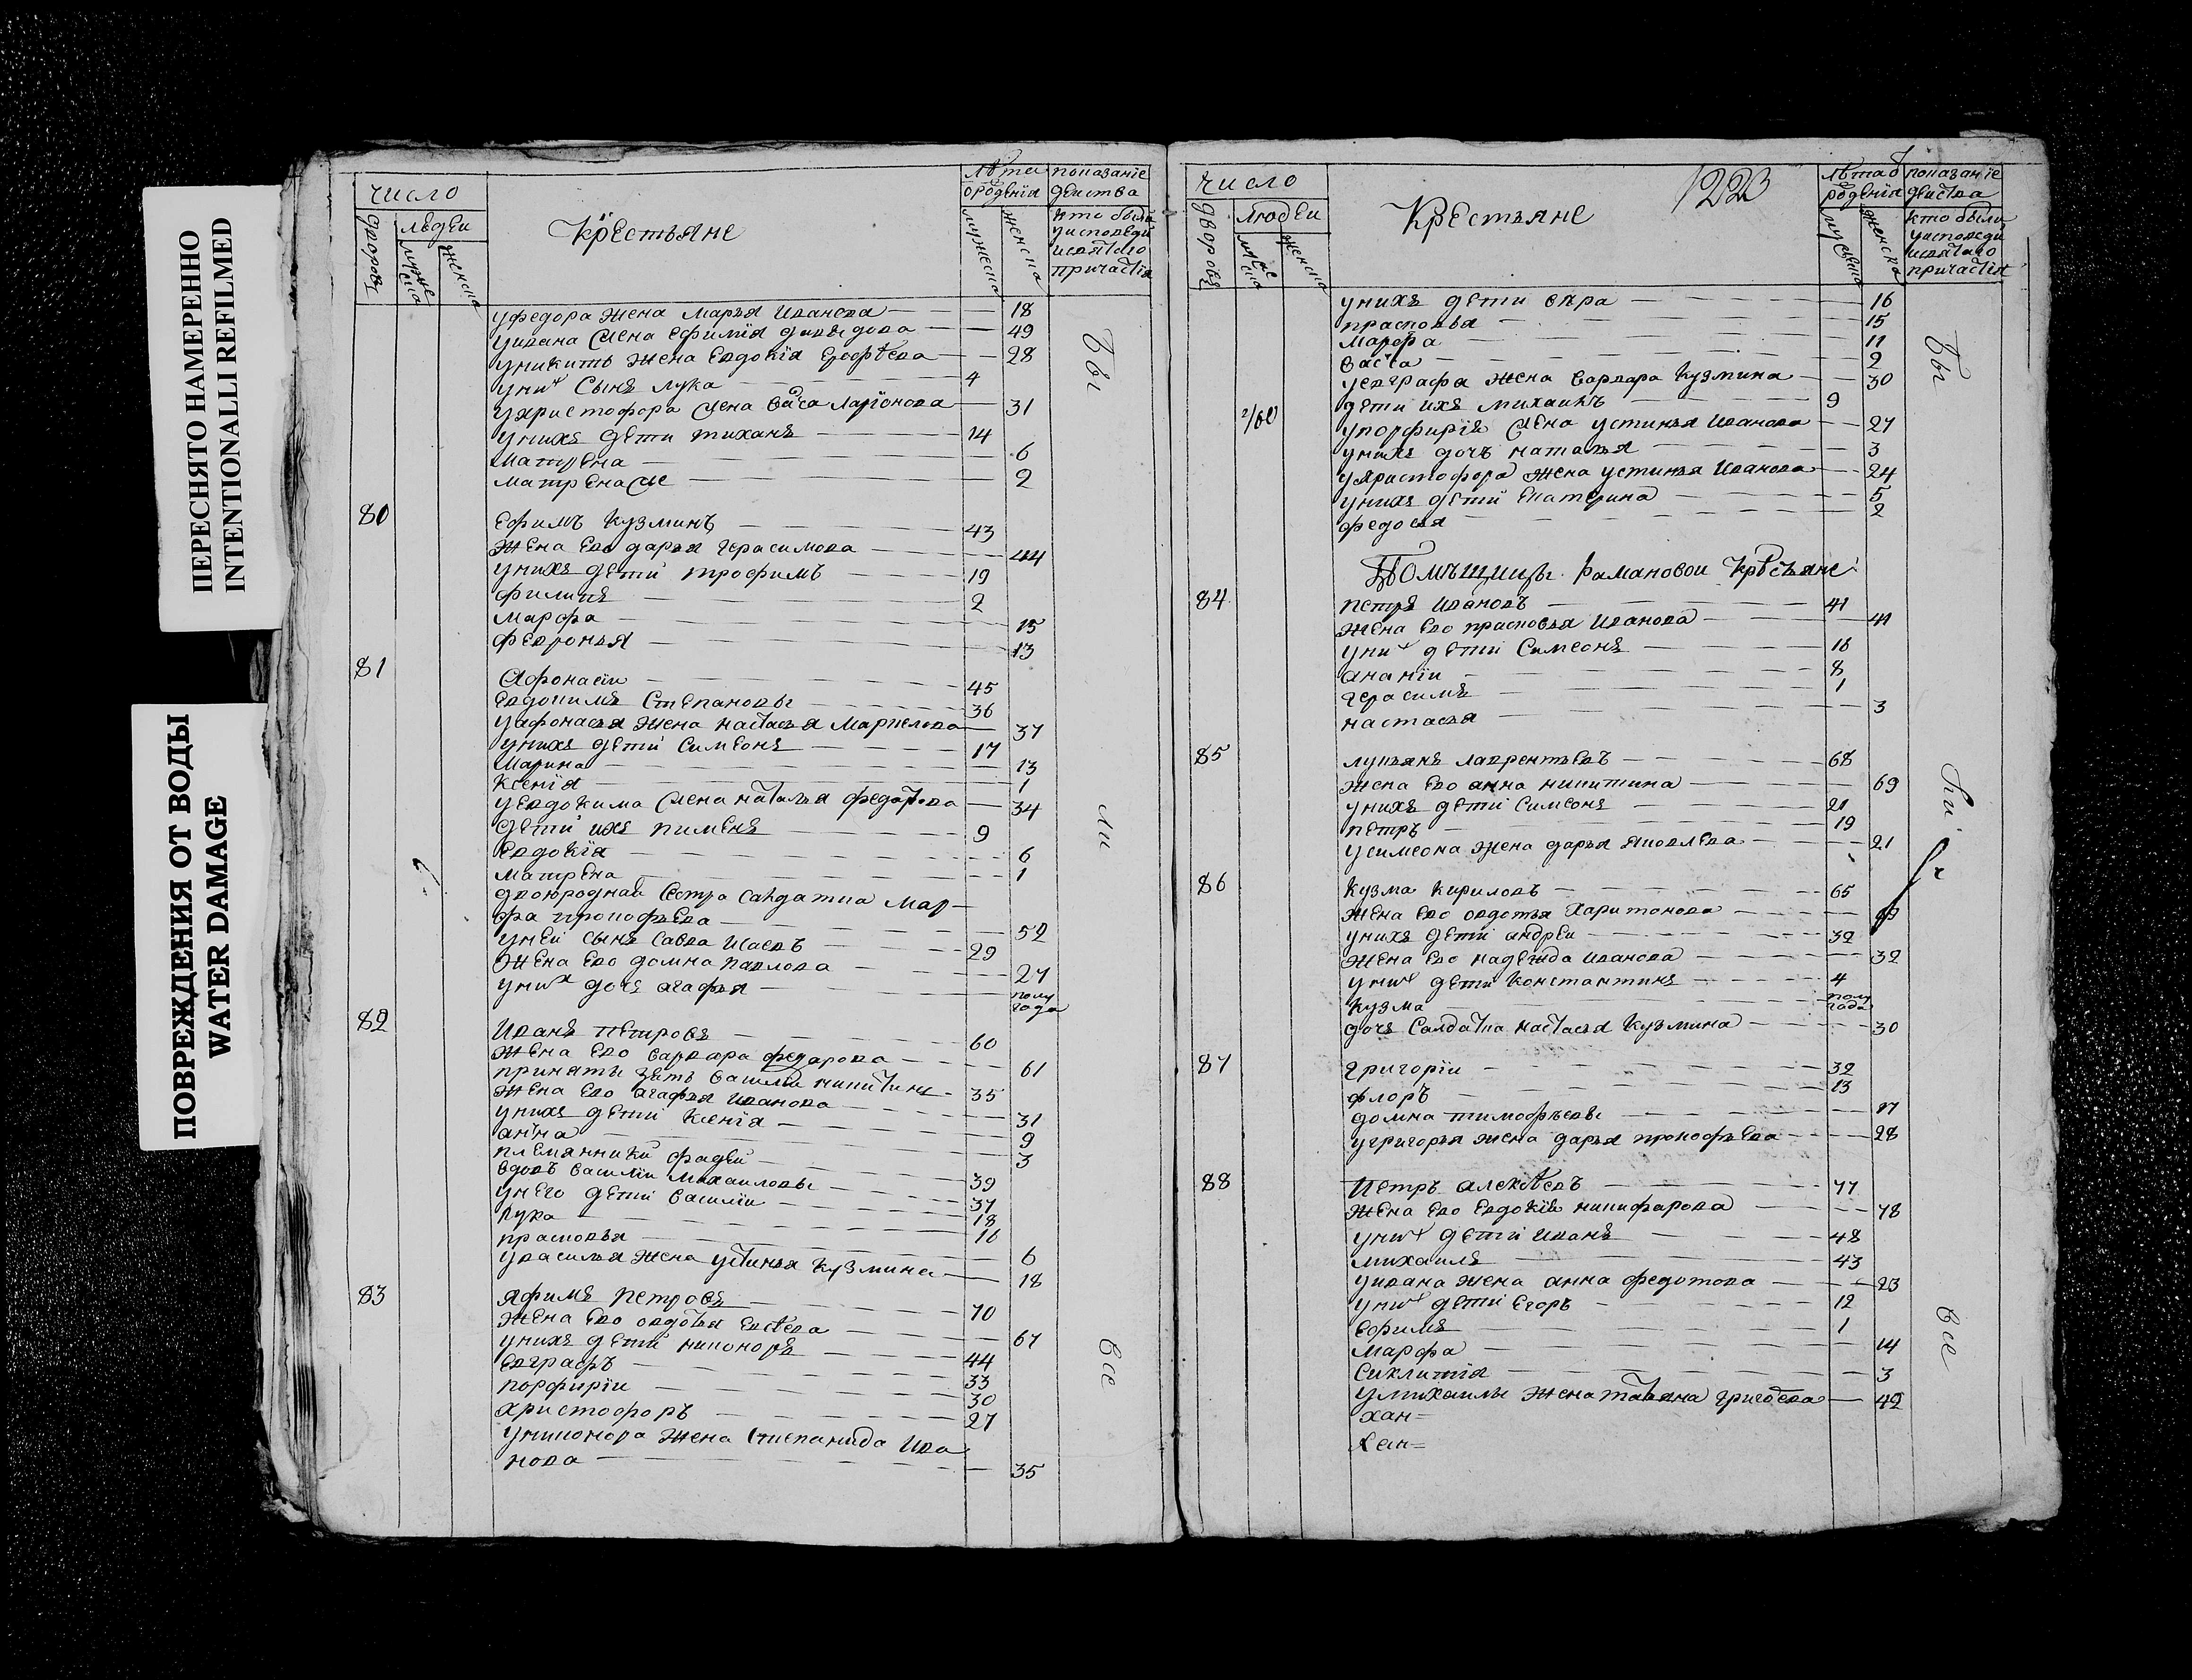 ПЕРЕСНЯТО НАМЕРЕННО
INTENTIONALLI REFILMED
ПОВРЕЖДЕНИЯ ОТ ВОДЫ
WATER DAMAGE
число
людеи
дворовъ
мужеска
женска
крестьяне
лѣта
рождения
мужеска
женска
показание
деиства
кто были
уисповеди
исвятаго
причастїя
уфедора жена марья иванова 18
уивана жена ефимїя давыдова 49
уникиты жена евдокїя ерофѣева 28
уних сынъ лука 4
ухристофора жена васса ларїонова 31
унихъ дети тиханъ 14
матрена 6
матренаже 2
80 ефимъ кузминъ 43
жена ево дарья герасимова 44
унихъ дети трофимъ 19
филипъ 2
марфа 15
февронья 13
81 афонасеи 45
евдокимъ степановы 36
уафонасья жена настасья маркелова 37
унихъ дети симеонъ 17
марина 13
ксенїя 1
уевдокима жена наталья федотова 34
дети ихъ пименъ 9
евдокїя 6
матрена 1
двоюродная сестра салдатка мар
фа прокофьева 52
унеи сынъ савва исаевъ 29
жена ево домна павлова 27
уних дочь агафья полу
года
82 иванъ петровъ 60
жена ево варвара федарова 61
приняты зять василеи никитинъ 35
жена ево агафья иванова 31
унихъ дети ксенїя 9
анна 3
племянники фадеи 39
вдовъ василїи михаиловы 37
унего дети василїи 18
лука 16
прасковья 6
увасилья жена устинья кузмина 18
83 яфимъ петровъ 70
жена ево овдотья евсѣева 67
унихъ дети никоноръ 44
евграфъ 33
порфирїи 30
христофоръ 27
униконора жена степанида ива
нова 35
бы
ли
все
число
дворовъ
людеи
мужеска
женска
крестьяне
1223
лѣта
рождения
мужеска
женска
показание
деиства
кто были
уисповеди
исвятаго
причастїя
унихъ дети вера 16
прасковья 15
марфа 11
васса 2
уевграфа жена варвара кузмина 30
дети ихъ михаилъ 9
упорфирїя жена устинья иванова 27
унихъ дочь наталья 3
ухристофора жена устинья иванова 24
унихъ дети екатерина 5
федосья 2
Помѣщицы рамановои крѣстьяне
84 петръ ивановъ 41
жена ево прасковья иванова 41
уних дети симеонъ 18
ананїи 8
герасимъ 1
настасья 3
85 лукьянъ лаврентьевъ 68
жена ево анна никитина 69
унихъ дети симеонъ 21
петръ 19
усимеона жена дарья яковлева 21
86 кузма кириловъ 65
жена ево овдотья харитонова
унихъ дети андреи 32
жена ево надежда иванова 32
уних дети константинъ 4
кузма полу
года
дочь салдатка настасья кузмина 30
87 григорїи 32
флоръ 13
домна тимофѣевы 17
угригорья жена дарья прокофьева 28
88 петръ алексѣевъ 77
жена ево евдокїя никифарова 78
уних дети иванъ 48
михаилъ 43
уивана жена анна федотова 23
уних дети егоръ 12
ефимъ 1
марфа 14
сиклитїя 3
умихаилы жена татьяна григоева 42
хан=
бы
ли
все